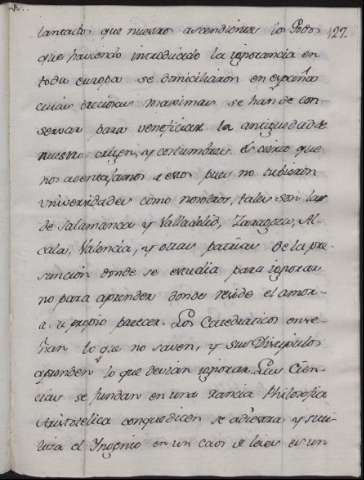 lantado, que nuestros ascendientes los Godos 127.
que haviendo introducido la ignorancia en
toda europa se domiciliaron en españa
cuias preciosas maximas se han de con-
servar para veneficiar la antiguedad de
nuestro origen, y costumbres es cierto que
nos aventajamos a estos pues no tubieron
universidades como nosotros, tales son las
de Salamanca y Valladolid, Zaragoza, Al-
cala, Valencia, y otras patrias de la pre-
suncion donde se estudia para ignorar
no para aprender donde reside el amor
a su propio parecer. Los Catedraticos ense-
ñan lo que no saven, y sus Discipulos
aprenden lo que devian ignorar. Las Cien-
cias se fundan en una rancia Philosofia
Aristotelica conque dicen se adiestra y suti-
liza el Ingenio en un caos de leies es un